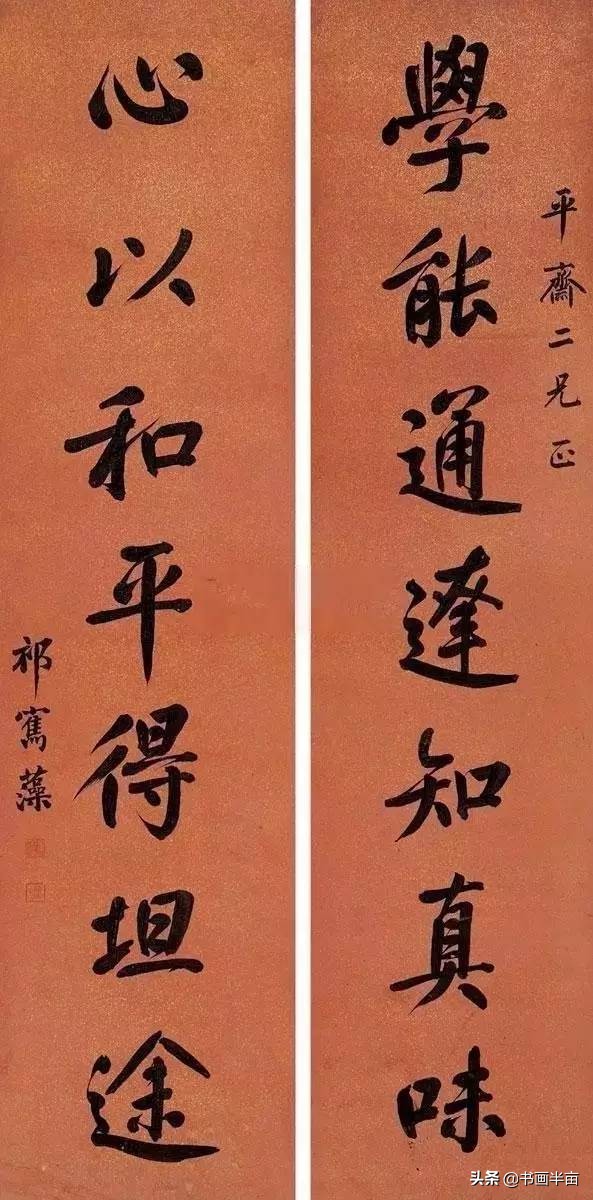 學能通達知真味
平齋二兄正
心以和平得坦途
祁寯藻
头条 @书画半亩